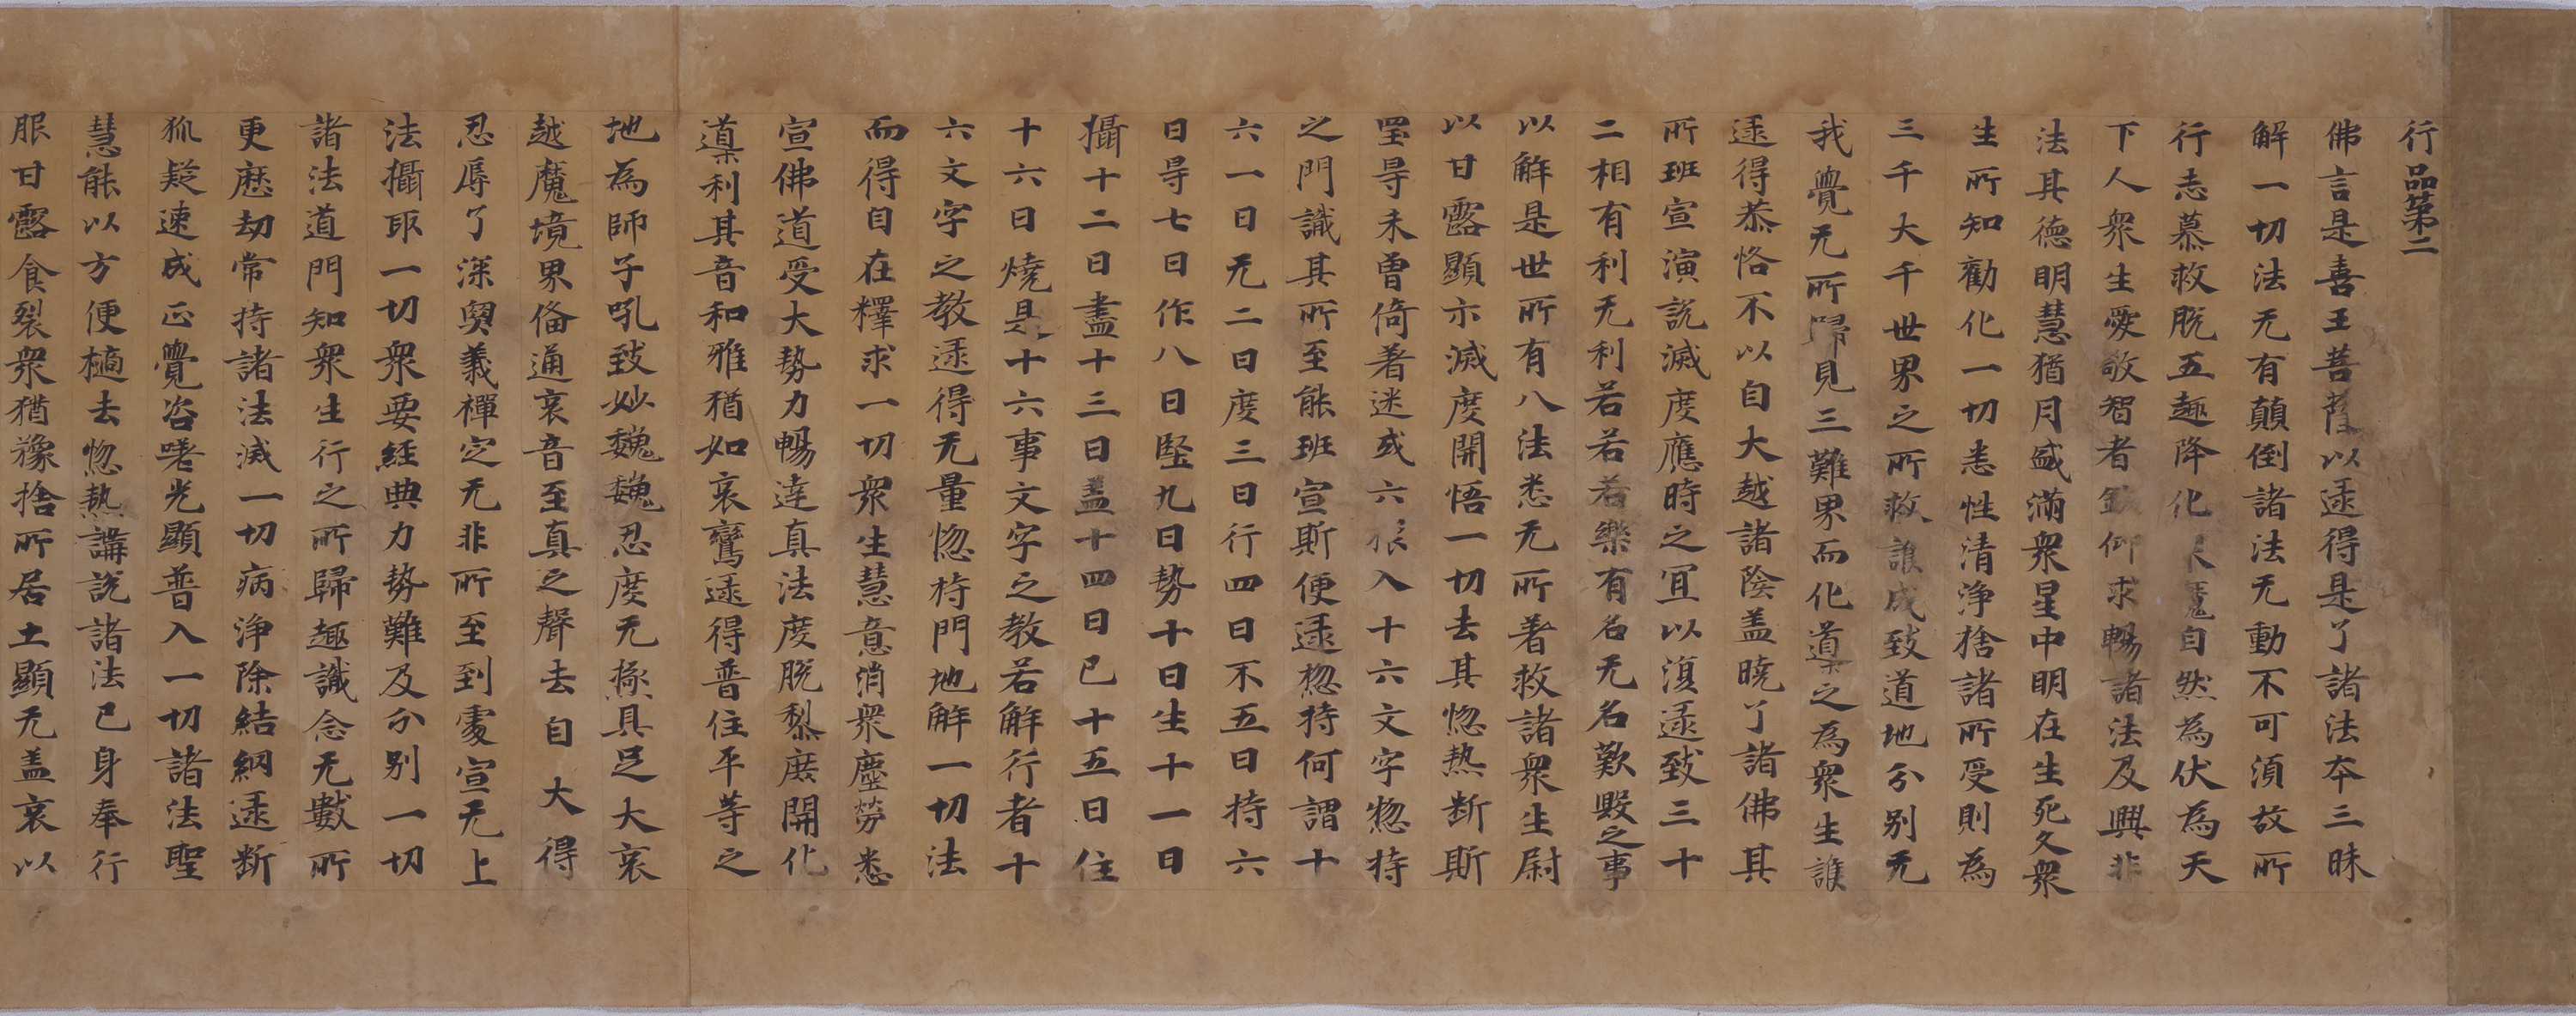 行品第二
佛言是喜王菩薩以逮得是了諸法本三昧
解一切法无有顛倒諸法无動不可湏故所
行志慕救脫五趣降化魔自然為伏為天
下人衆生愛敬智者仰求暢諸法及興非
法其德明慧猶月盛滿衆星中明在生死久衆
生所知勸化一切恚性清淨捨諸所受則為
三千大千世界之所救護成致道地分别无
我覺无所歸見三難界而化導之為衆生護
逮得恭恪不以自大越諸陰盖曉了諸佛其
所班宣演說滅度應時之冝以澓逮致三十
二相有利无利若若若樂有名无名歎毀之事
以解是世所有八法悉无所著救諸衆生尉
以甘露顯示滅度開悟一切去其惚熱断斯
罣㝵未曾倚著迷或六根入十六文字惣持
之門識其所至能班宣斯便逮惣持何謂十
六一曰无二曰度三曰行四曰不五曰持六
曰㝵七曰作八曰堅九曰勢十曰生十一曰
攝十二曰盡十三曰盖十四曰已十五曰住
十六曰燒是十六事文字之教若解行者十
六文字之教逮得无量惚持門地解一切法
而得自在釋求一切衆生慧意消衆塵勞悉
宣佛道受大勢力暢達真法度脫黎庶開化
導利其音和雅猶如哀鸞逮得普住平等之
地為師子吼致妙巍巍忍度无極具足大哀
越魔境界偹通哀音至真之聲去自大得
忍辱了深奧義禪定无非所至到處宣无上
法攝取一切衆要經典力勢難及分别一切
諸法道門知衆生行之所歸趣識念无數所
更歷劫常持諸法滅一切病淨除結網逮断
狐疑速成正覺咨嗟光顯普入一切諸法聖
慧能以方便樀去惚熱講說諸法己身奉行
服甘露食裂衆猶豫捨所居土顯无盖哀以